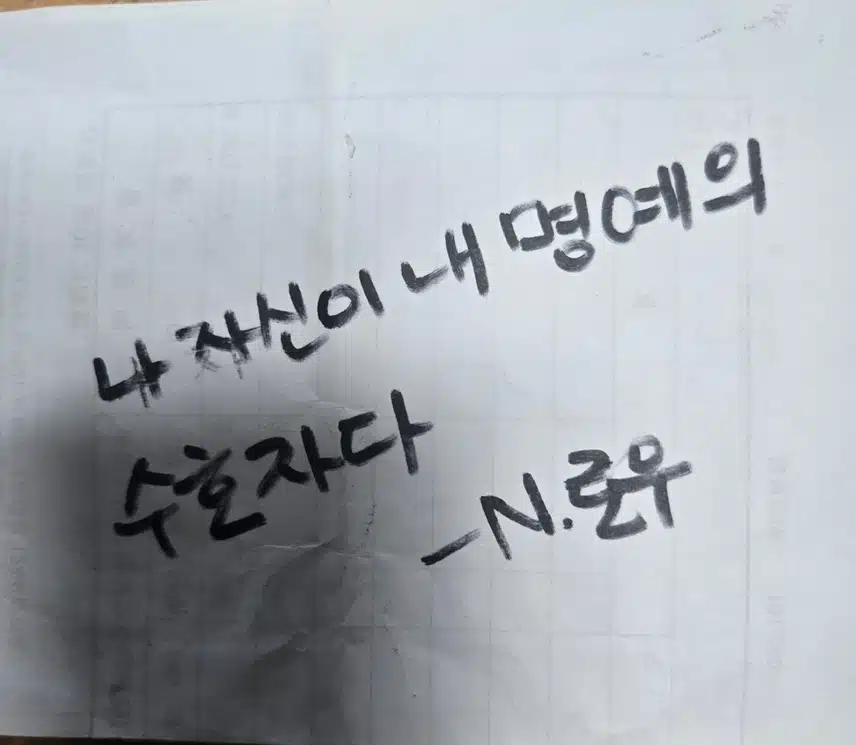 나 자신이 내 명예의
수호자다
-N.로우